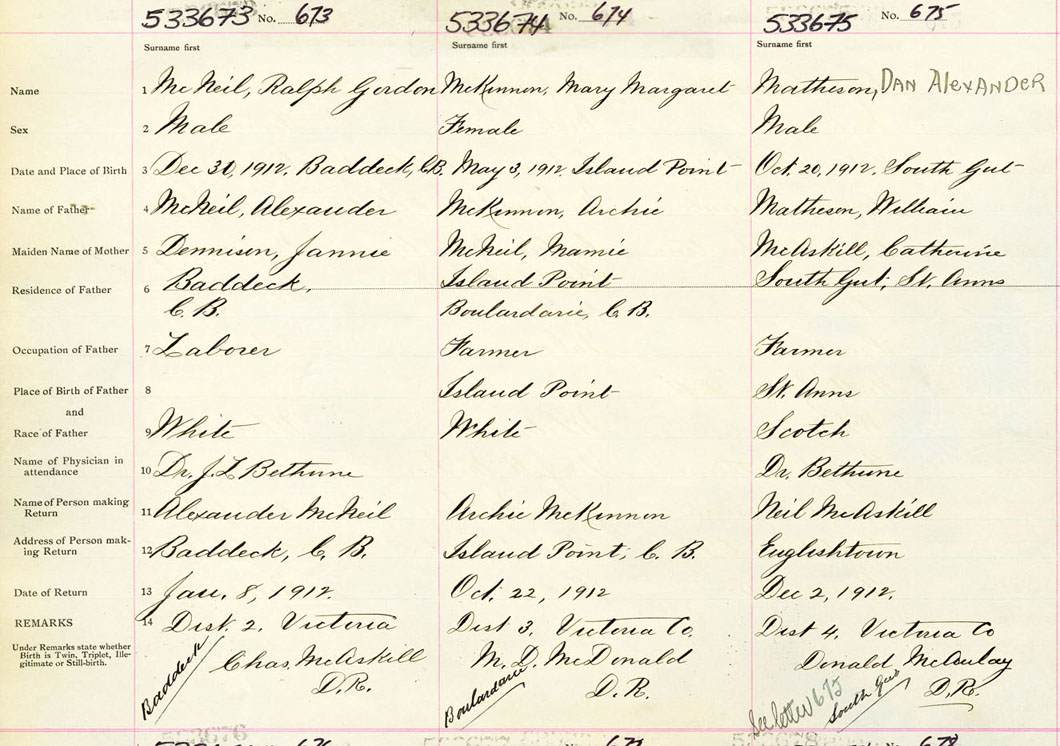 533673 No. 673 533674 No. 674 533675 No. 675
Surname first Surname first Surname first
Name 1 McNeil, Ralph Gordon McKinnon, Mary Margaret Matheson, DAN AlexANDER
Sex 2 Male Female Male
Date and Place of Birth 3 Dec 30, 1912. Baddeck, C.B. May 3, 1912. Island Point Oct. 20, 1912. South Gut
Name of Father 4 McNeil, Alexander McKinnon, Archie Matheson, William
Maiden Name of Mother 5 Dennison, Jannie McNeil, Mamie McAskill, Catherine
Residence of Father 6 Baddeck, Island Point South Gut, St. Anns
C. B. Boulardarie, C. B.
Occupation of Father 7 Laborer Farmer Farmer
Place of Birth of Father 8 Island Point St. Anns
and
Race of Father 9 White White Scotch
Name of Physician in
attendance 10 Dr. J. L. Bethune Dr. Bethune
Name of Person making
Return 11 Alexander McNeil Archie McKinnon Neil McAskill
Address of Person mak-
ing Return 12 Baddeck, C. B. Island Point, C. B. Englishtown
Date of Return 13 Jan. 8, 1912. Oct. 22, 1912 Dec 2, 1912.
REMARKS 14 Dist. 2, Victoria Dist 3, Victoria Co. Dist 4, Victoria Co
Under Remarks state whether
Birth is Twin, Triplet, Ille-
gitimate or Still-birth.
Baddeck Chas. McAskill M. D. McDonald Donald McAulay
D.R. Boulardarie D.R. See letter 675 South Gut D.R.
533676
676 677 678